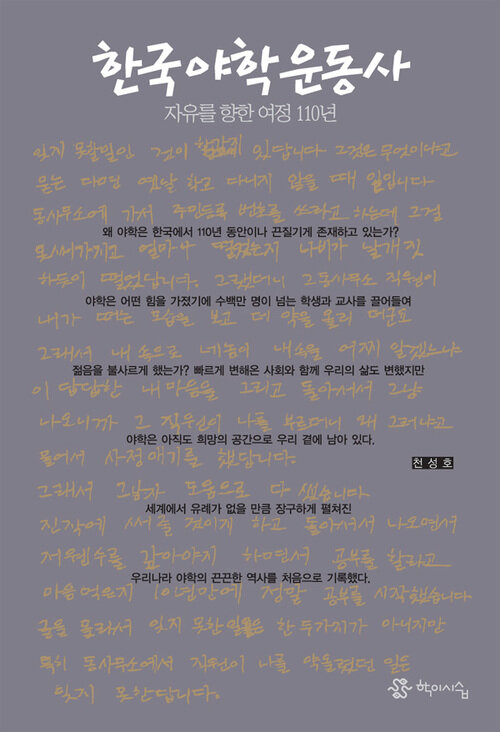 한국야학운동사
자유를 향한 여정 110년
잊지 못할일인 것이 한가지 있답니다 그것은 무엇이냐고
묻는 다면 옛날 학교 다니지 않을 때 일입니다
동사무소에 가서 주민등록 번호를 쓰라고 하는데 그걸
왜 야학은 한국에서 110년 동안이나 끈질기게 존재하고 있는가?
못써가지고 얼마나 떨었는지 나비가 날개짓
하듯이 떨었답니다. 그랬더니 그동사무소 직원이
야학은 어떤 힘을 가졌기에 수백만 명이 넘는 학생과 교사를 끌어들여
내가 떠는 모습을 보고 더 약을 올리 더군요
그래서 내 속으로 네놈이 내속을 어찌 알겠느냐
젊음을 불사르게 했는가? 빠르게 변해온 사회와 함께 우리의 삶도 변했지만
이 답답한 내마음을 그리고 돌아서서 그냥
나오니까 그 직원이 나를 부르더니 왜 그러냐고
야학은 아직도 희망의 공간으로 우리 곁에 남아 있다.
물어서 사정얘기를 했답니다.
천성호
그래서 그남자 도움으로 다 썼습니다
세계에서 유례가 없을 만큼 장구하게 펼쳐진
진작에 써줄 것이게 하고 돌아서서 나오면서
저웬수를 갚아야지 하면서 공부를 할라고
우리나라 야학의 끈끈한 역사를 처음으로 기록했다.
마음먹은지 10년만에 정말 공부를 시작했습니다
글을 몰라서 잊지 못한 일들은 한 두가지가 아니지만
특히 동사무소에서 직원이 나를 약올렸던 일은
잊지 못한답니다.
학이시습